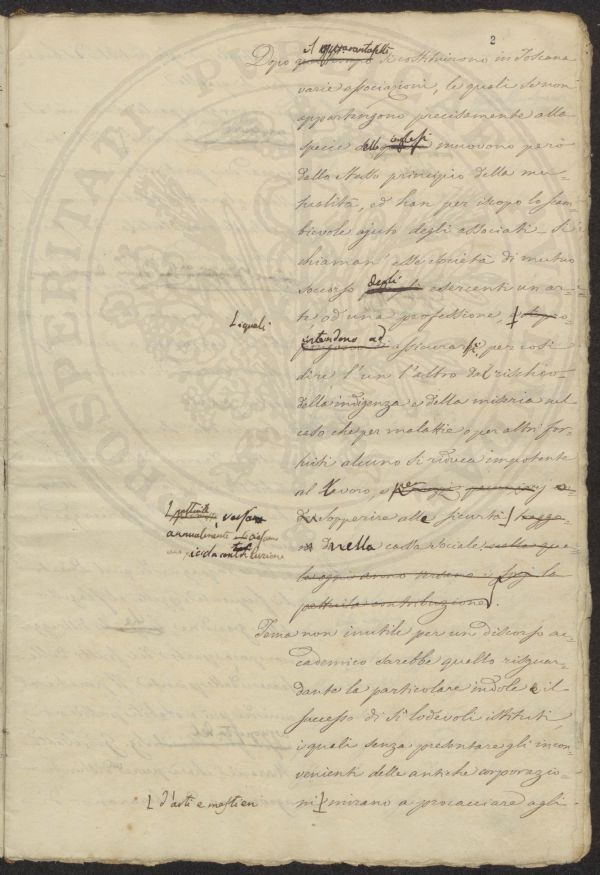 2
Dopo il quarantasette si costituirono in Toscana
varie associazioni, le quali se non
appartengono precisamente alla
specie delle inglesi muovono però
dallo stesso principio della mu-
tualità, ed han per iscopo lo scam-
bievole ajuto degli associati. Si
chiaman' esse Società di mutuo
soccorso degli esercenti un ar-
te od una professione,
i quali
intendono ad assicurarsi, per così
dire l'un l'altro dal rischio
della indigenza e della miseria nel
caso che per malattie o per altri for-
tuiti alcuno si riduca impotente
al lavoro, e per
sopperire alle
versare
annualmente
nella cassa sociale, sulla qua-
le ogni anno versano
pattuita contribuzione
Tema non inutile per un discorso ac-
cademico sarebbe quello risguar-
dante la particolare indole e il
successo di sì lodevoli istituti,
i quali senza presentare gli incon-
venienti delle antiche corporazio-
ni mirano a procacciare agli
d'arti e mestieri